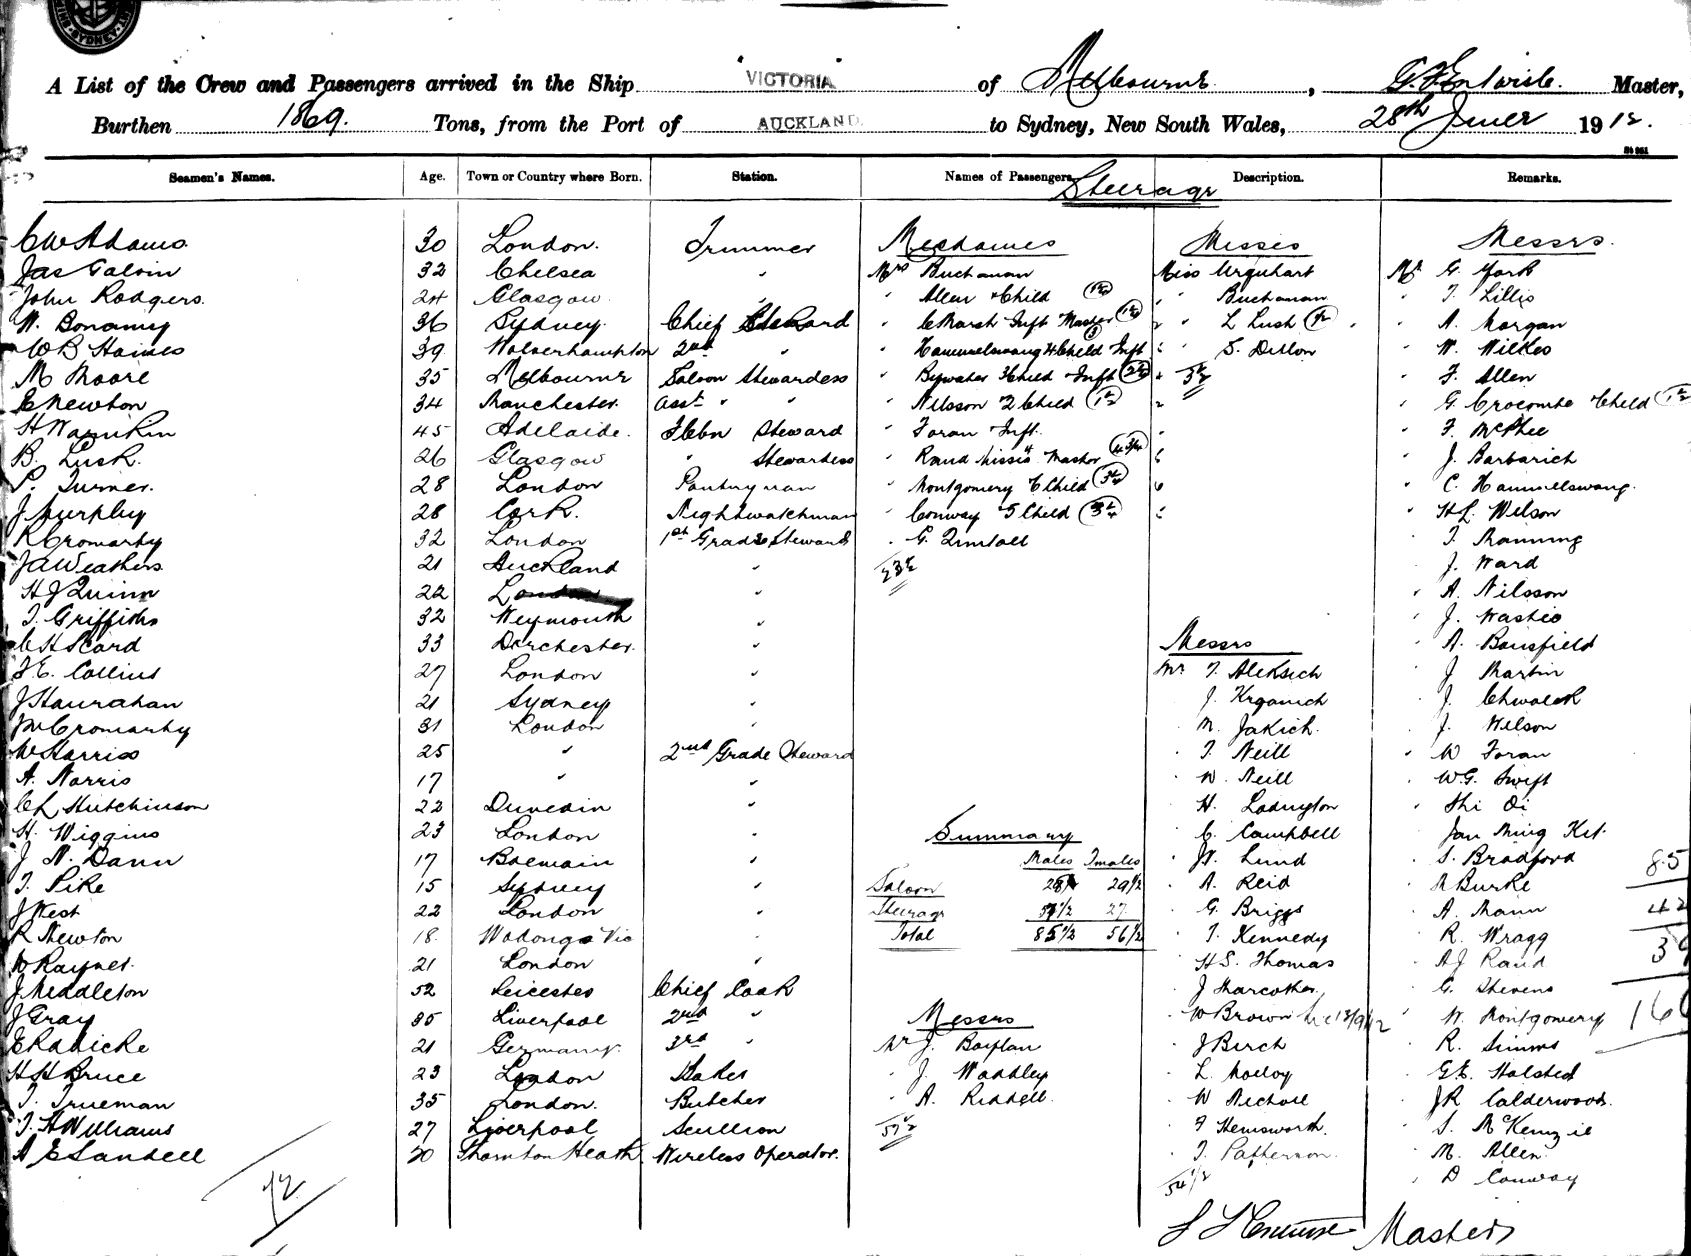 SYDNEY
A List of the Crew and Passengers arrived in the Ship VICTORIA of Melbourne, Master,
Burthen 1869. Tons, from the Port of AUCKLAND. to Sydney, New South Wales, 28th 1912.
Seamen's Names. Age. Town or Country where Born. Station. Names of Passengers Steerage Description. Remarks.
C W Adams 30 London. Trimmer Mesdames Misses Messrs.
Jas Galvin 32 Chelsea " Mrs Buchanan Miss Urquhart Mr G. York
John Rodgers. 24 Glasgow " " Allen & Child " Buchanan " T. Lillis
W. Bonamy 36 Sydney. Chief Steward " Inft Master " L Lush " A. Morgan
W B Haines 39 Wolverhampton 2nd " " 4 Child Inft " S. Dillon " W. Wilkes
M Moore 35 Melbourne Saloon Stewardess " Bywater 3 Child Inft " F. Allen
E Newton 34 Manchester. Asst " " " Nilsson 2 Child " G. Crocombe Child
45 Adelaide. Steward " Foran Inft. " F. McPhee
B. Lusk. 26 Glasgow " Stewardess " Rand Misses 4 Master " J. Barbarich
P. Turner. 28 London Pantryman " Montgomery 6 Child " C. Hammelswang.
J Murphy 28 Cork. Nightwatchman " Conway 5 Child " H L. Wilson
R Cromarty 32 London 1st Grade Steward " G. " T. Manning
J A Weathers. 21 Auckland " " J. Ward
H J Quinn 22 London " " A. Nilsson
T. Griffiths 32 Weymouth " " J.
33 Dorchester. " Messrs " A. Bansfield
J. E. Collins 27 London " Mr T. Aleksich " J Martin
J Hanrahan 21 Sydney " J. Krganich " J.
J W Cromarty 31 London " M. Jakich. " J. Wilson
W Harris 25 " 2nd Grade Steward " T. Neill " W Foran
A. Norris 17 " " " W. Neill " W G. Swift
C L Hutchinson 22 Dunedin " " H. " Shi Oi
H. Wiggins 23 London " Summary " C. Campbell Jan Ming Kit.
J N. Dann 17 Balmain " Males Fmales " J W. Lund " S. Bradford 85
T. Pike 15 Sydney " Saloon 29 1/2 " A. Reid Burke
J West 22 London " Steerage 27 " G. Briggs " A. Mann 42
R Newton 18. Wodonga Vic " Total 85 1/2 56 1/2 " T. Kennedy " R. Wragg
W Rayner. 21 London " " H S. Thomas " A J Rand
J Middleton 52 Leicester Chief Cook " J " G. Stevens
J Gray 35 Liverpool 2nd " Messrs " W Brown " W. Montgomery
E Radicke 21 Germany. 3rd " Mr J. Boylan " J Birch " R. Simms
H H Bruce 23 London Baker " J. Waddley " L. Molloy " G E. Halsted
T. Trueman 35 London. Butcher " A. Riddell. " W Nicholl " J R Calderwood.
T. H Williams 27 Liverpool Scullion " F Hemsworth. " S. McKenzie
A E Sandell 20 Thornton Heath Wireless Operator. " T. Patterson. " M. Allen
54 1/2 " D Conway
72
Master